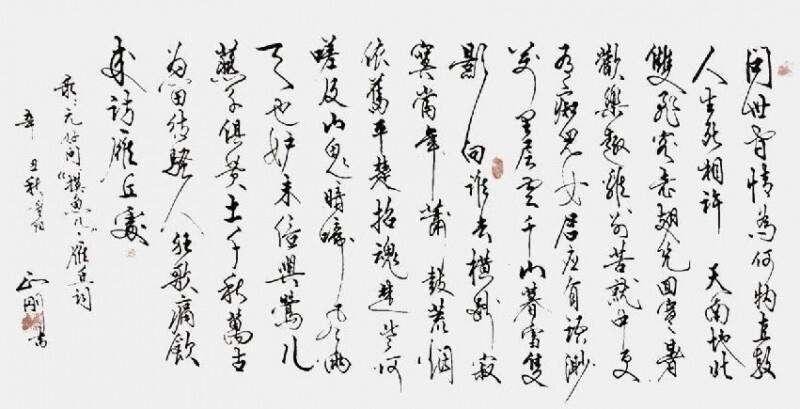 問世間情為何物直教
人生死相許 天南地北
雙飛客老翅幾回寒暑
歡樂趣離別苦就中更
有癡兒女君應有語渺
萬里層雲千山暮雪隻
影向誰去橫汾路寂
寞當年蕭鼓荒烟
依舊平楚招魂楚些何
嗟及山鬼暗啼風雨
天也妒未信與鶯兒
燕子俱黃土千秋萬古
為留待騷人狂歌痛飲
來訪雁丘處
录元好问"摸魚儿·雁丘词
辛丑秋
正刚書